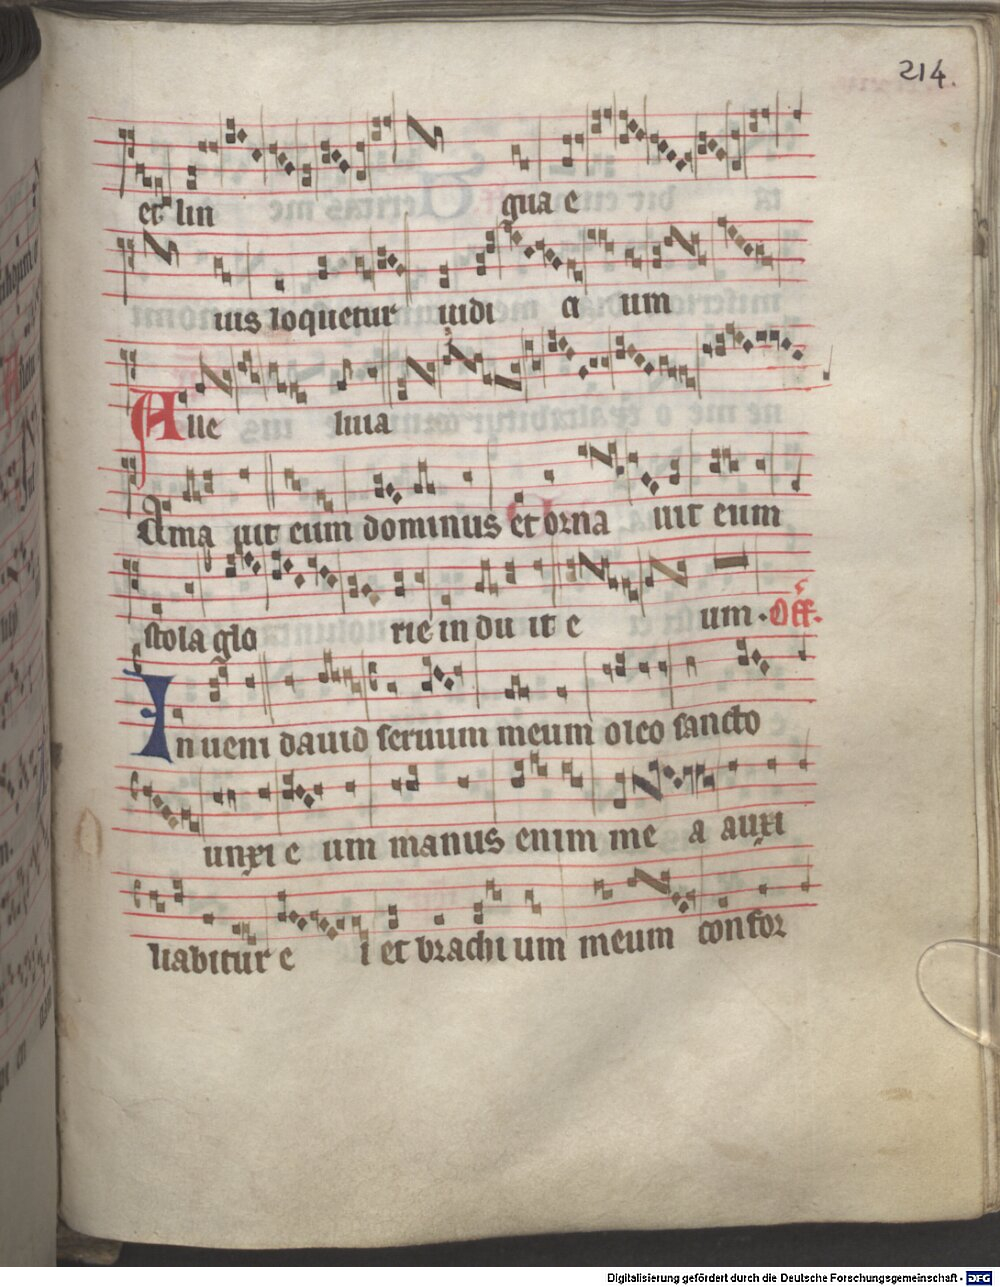 214.
et lin gua e
ius loquetur iudi ci um
Alle luia
Ama uit eum dominus et orna uit eum
stola glo rie in du it e um. Off.
Inueni dauid seruum meum oleo sancto
unxi e um manus enim me a auxi
liabitur e i et brachi um meum confor
Digitalisierung gefördert durch die Deutsche Forschungsgemeinschaft - DFG